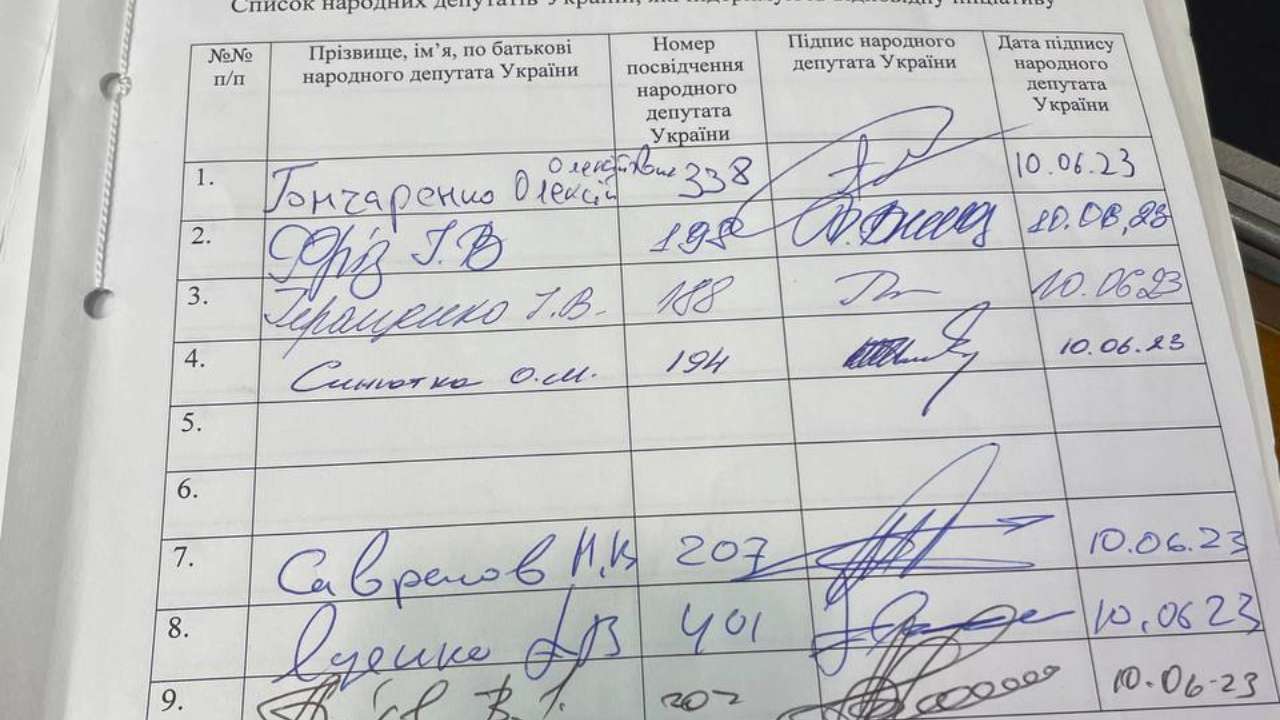 Список народних депутатів України, які підтримують відповідну ініціативу
№№ п/п
Прізвище, ім’я, по батькові народного депутата України
Номер посвідчення народного депутата України
Підпис народного депутата України
Дата підпису народного депутата України
1. Гончаренко Олексій Олексійович 338 10.06.23
2. Фріз І.В 10.06.23
3. Геращенко І.В. 188 10.0623
4. Синютка О.М. 194 10.06.23
5.
6.
7. 207 10.06.23
8. 401 10.0623
9. 202 10.06-23